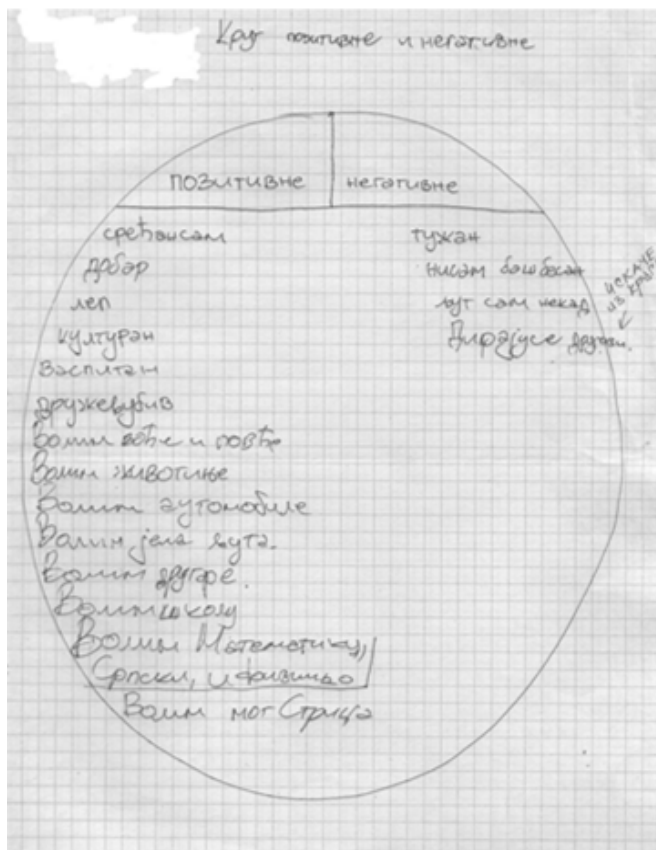 Круг позитивне и негативне
позитивне
негативне
срећансам
добар
леп
културан
васпитан
дружељубив
Волим воће и поврће
Волим животиње
Волим аутомобиле
Волим јела
Волим другаре.
Волим школу
Волим Математику,
Српски, и физичко
Волим мог Стрица
тужан
нисам баш бесан
љут сам некад
Дирајусе
искаче
из круга